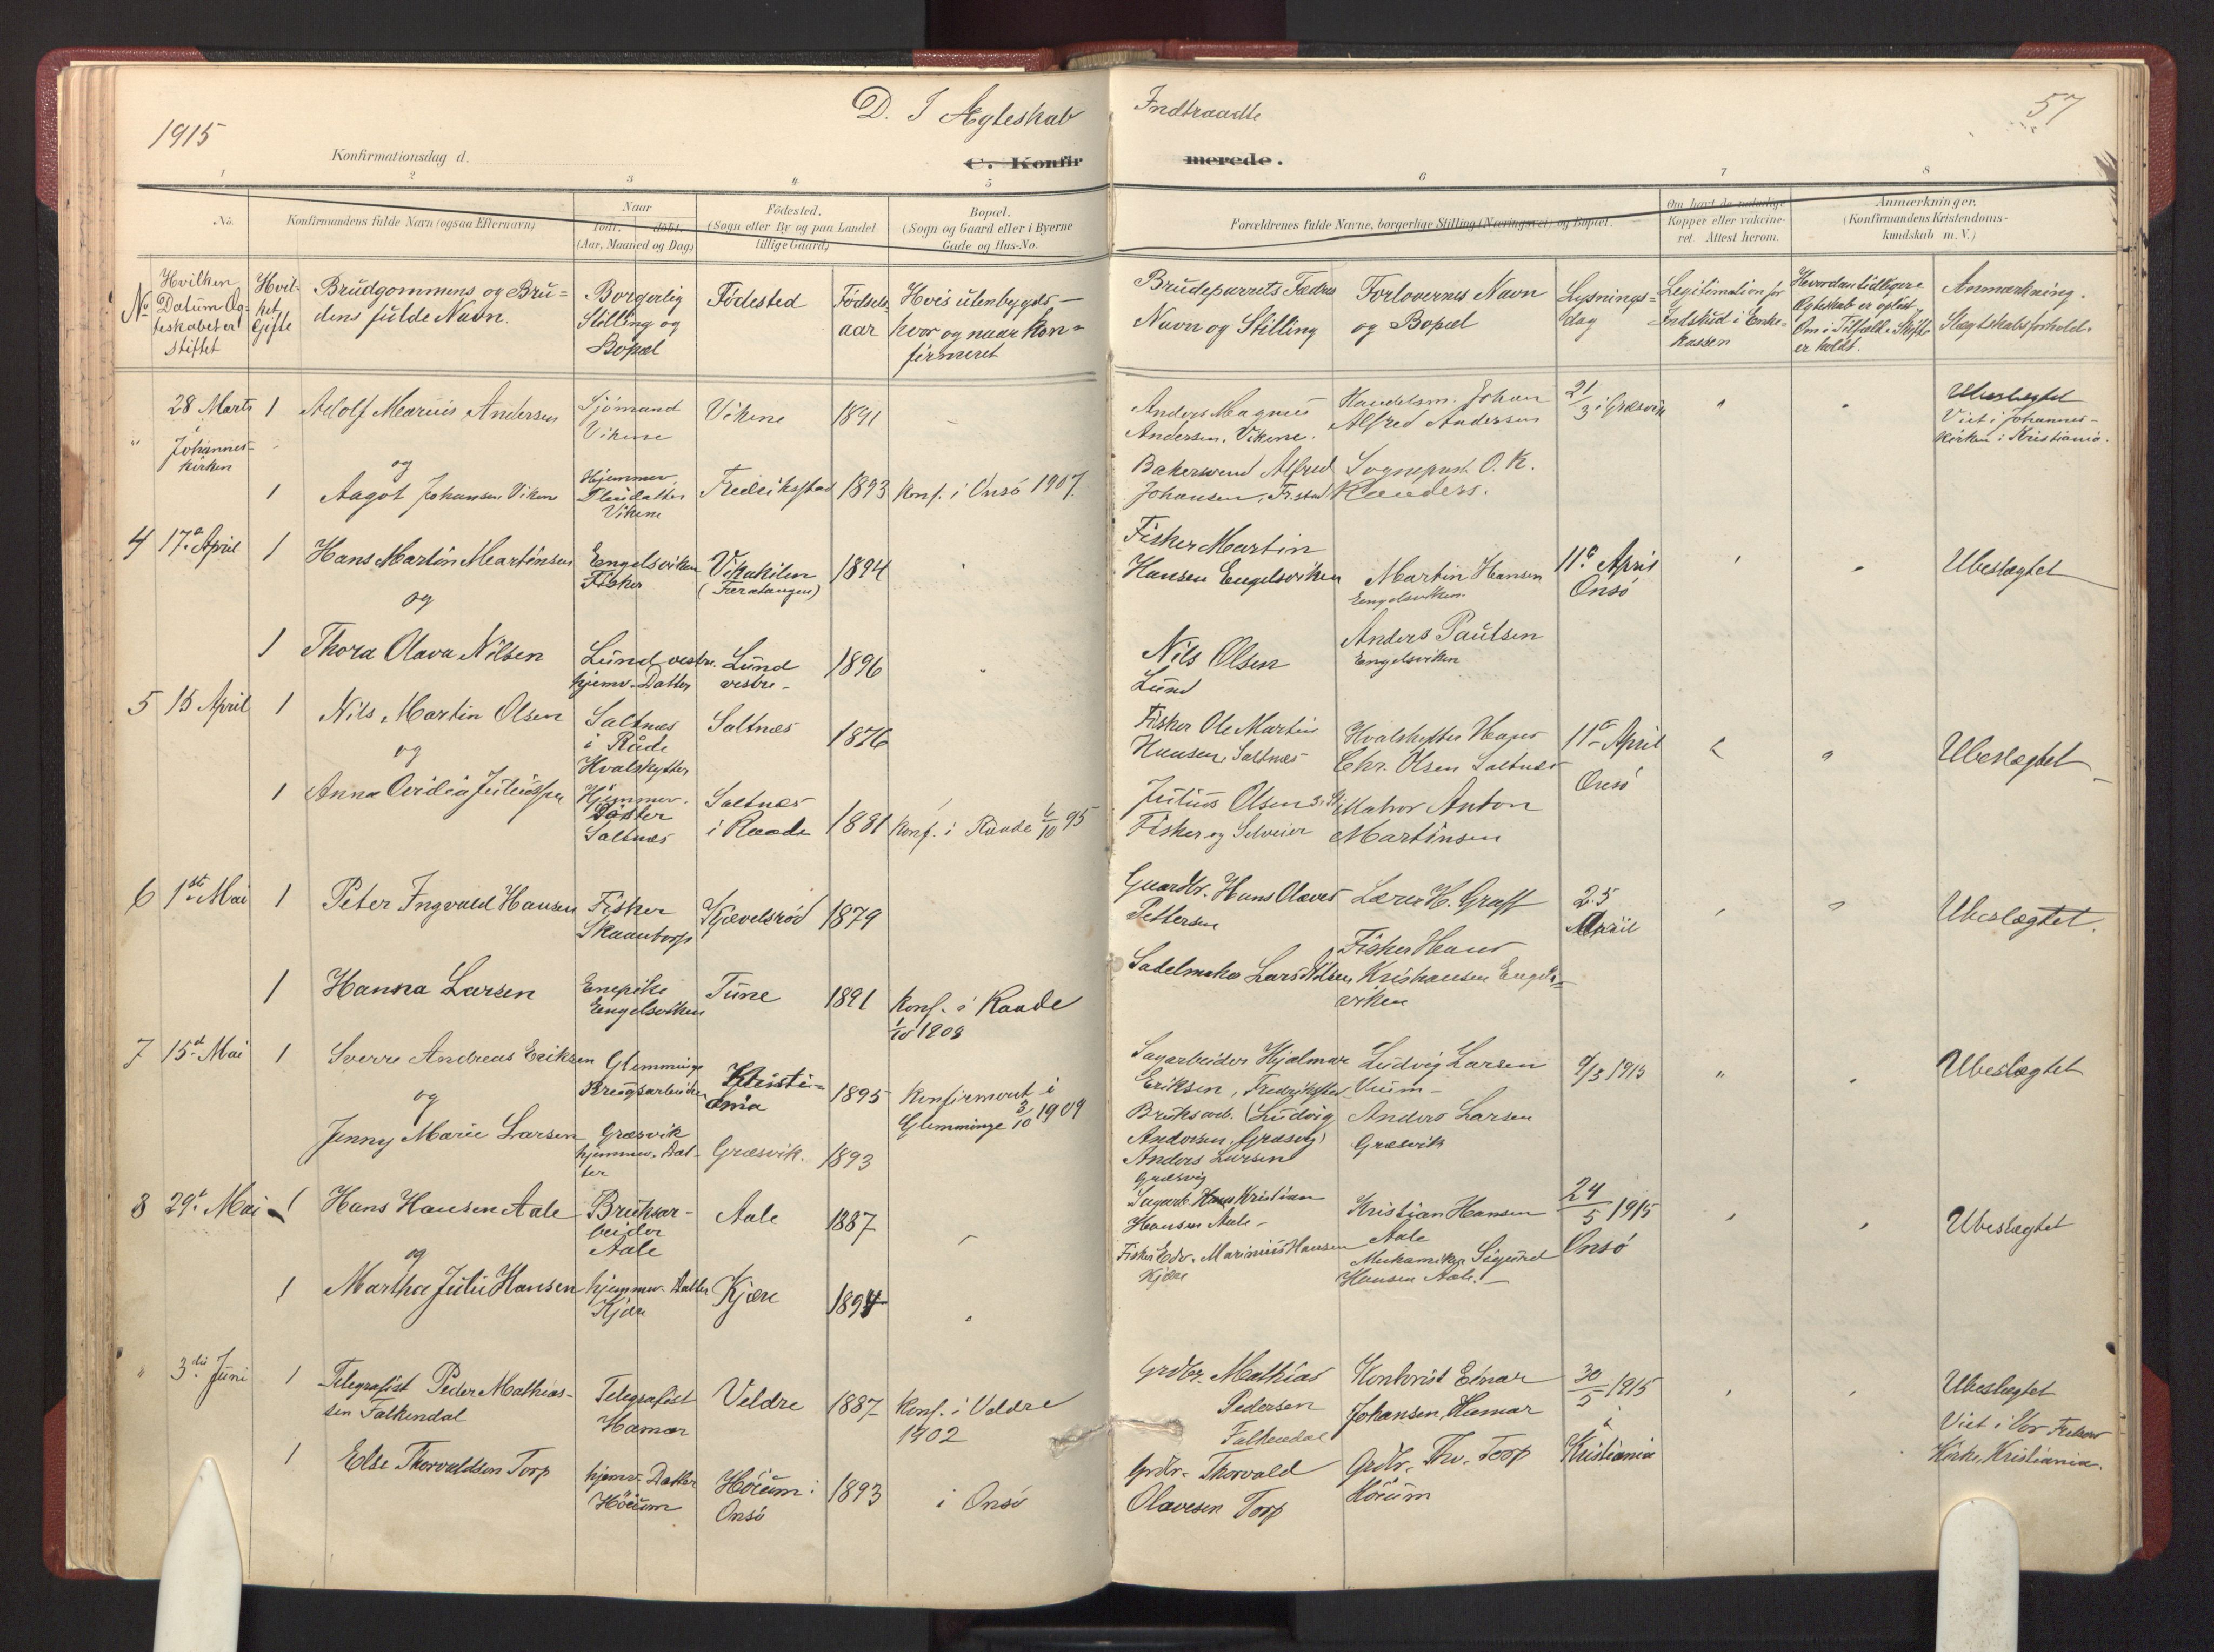 1915
D. I Ægteskab Indtraadte
57
Konfirmationsdag d.
C. Konfirmerede.
1 2 3 4 5 6 7 8
No.
Konfirmandens fulde Navn (ogsaa Efternavn)
Naar
født. døbt.
(Aar, Maaned og Dag)
Fødested.
(Sogn eller By og paa Landet
tillige Gaard)
Bopæl.
(Sogn og Gaard eller i Byerne
Gade og Hus-No.
Forældrenes fulde Navne, borgerlige Stilling (Næringsvei) og Bopæl.
Om havt de naturlige
Kopper eller vakcine-
ret Attest herom.
Anmærkninger.
(Konfirmandens Kristendoms-
kundskab m. V.)
No
Hvilken
Datum Æg-
teskabet er
stiftet
Hvil-
ket
Gifte
Brudgommens og Bru-
dens fulde Navn
Borgerlig
Stilling og
Bopæl
Födested
Födsels
aar
Hvis utenbygds-
hvor og naar kon-
firmeret
Brudeparrets Fædres
Navn og Stilling
Forlovernes Navn
og Bopæl
Lysnings-
dag
Legitimation for
Indskud i Enke-
kassen
Hvordan tidligere
Ægteskab er oplöst
Om i Tilfælde Skifte
er holdt.
Anmærkning.
Slægtskabsforhold.
" 28 Marts
i
Johannes-
kirken
1 Adolf Marius Andersen
Sjömand
Vikene
Vikene
1891
Anders Magnus
Andersen, Vikene.
Handelsm. Johan
Alfred Andersen
21/3 i Græsvik
" "
Ubeslægtet
Viet i Johannes-
kirken i Kristiania.
og
1 Aagot Johansen Viken
Hjemmev.
Pleiedatter
Vikene
Fredrikstad
1893
Konf. i Onsö 1907.
Bakersvend Alfred
Johansen, Fr.stad
Sogneprest O. K.
Randers.
4 17de April 1 Hans Martin Martinsen
Engelsviken
Fisker
Vikakilen
(Færatangen)
1894
"
Fisker Martin
Hansen Engelsviken
Martin Hansen
Engelsviken
11te April
Onsö
" "
Ubeslægtet
og
1 Thora Olava Nilsen
Lund vestre.
hjemv. Datter
Lund
vestre
1896
"
Nils Olsen
Lund
Anders Paulsen
Engelsviken
5 15 April 1 Nils Martin Olsen
Saltnes
i Råde
Hvalskytter
Saltnæs
1876
Fisker Ole Martin
Hansen, Saltnæs
Hvalskytter Hans
Chr. Olsen Saltnæs
11te April
Onsö
" "
Ubeslægtet
og
1 Anna Ovidia Juliussen
Hjemmev.
Datter
Saltnæs
Saltnæs
i Raade
1881
Konf. i Raade 6/10 95
Julius Olsen
Fisker og Selveier
Matros Anton
Martinsen
6 1ste Mai 1 Peter Ingvald Hansen
Fisker
Skaantorp
Kjævelsröd
1879
Gaardbr. Hans Olaves
Pettersen
Lærer H. Graff
25
April
" "
Ubeslægtet.
1 Hanna Larsen
Enepike
Engelsviken
Tune
1891
Konf. i Raade
1/10 1908
Sadelmaker Lars Olsen
Fisker Hans
Kristiansen Engels-
viken
7 15de Mai 1 Sverre Andreas Eriksen
Glemminge
Brugsarbeider
Kristi-
ania
1895
Konfirmeret i
Glemminge 3/10 1909
Sagarbeider Hjalmar
Eriksen, Fredrikstad
Ludvig Larsen
Vium-
9/5 1915
" "
Ubeslægtet
og
Jenny Marie Larsen
Græsvik
hjemmev. Dat-
ter
Græsvik.
1893
Bruksarb. (Ludvig
Andersen, Græsvig)
Anders Larsen
Græsvig
Anders Larsen
Græsvik
8 29de Mai 1 Hans Hansen Aale
Bruksar-
beider
Aale
Aale
1887
"
Sagarb. Hans Kristian
Hansen Aale-
Kristian Hansen
Aale
24/5 1915
Onsö
" "
Ubeslægtet
og
1 Martha Julie Hansen
hjemmev. Datter
Kjære
Kjære
1894
"
Fisker Edv. Marinius Hansen
Kjære
Mekaniker Sigurd
Hansen Aale.
" 3die Juni 1 Telegrafist Peder Mathias-
sen Falkendal
Telegrafist
Hamar
Veldre
1887
Konf. i Veldre
1902
Grdbr. Mathias
Pedersen
Falkendal
Kontorist Einar
Johansen, Hamar
30/5 1915
i
Kristiania
" "
Ubeslægtet
Viet i Vor Frelsers
Kirke, Kristiania.
1 Else Thorvaldsen Torp
hjemv. Datter
Höium
Höium i
Onsö
1893
i Onsö
Grdbr. Thorvald
Olavesen Torp
Grdbr. Thv. Torp
Höium